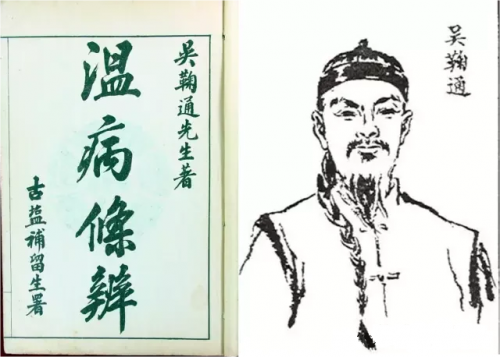 吴鞠通先生著
溫病條辨
古盐補留生署
吴鞠通